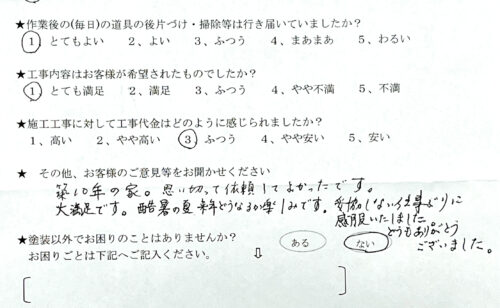 ★作業後の(毎日)の道具の後片づけ・掃除等は行き届いていましたか?
1、とてもよい 2、よい 3、ふつう 4、まあまあ 5、わるい
★工事内容はお客様が希望されたものでしたか?
1、とても満足 2、満足 3、ふつう 4、やや不満 5、不満
★施工工事に対して工事代金はどのように感じられましたか?
1、高い 2、やや高い 3、ふつう 4、やや安い 5、安い
★ その他、お客様のご意見等をお聞かせください
築10年の家。思い切って依頼してよかったです。
大満足です。酷暑の夏来年どうなるか楽しみです。妥協しない仕事ぶりに
感服いたしました
どうもありがとう
ございました。
★塗装以外でお困りのことはありませんか? ある ない
お困りごとは下記へご記入ください。 ⇩